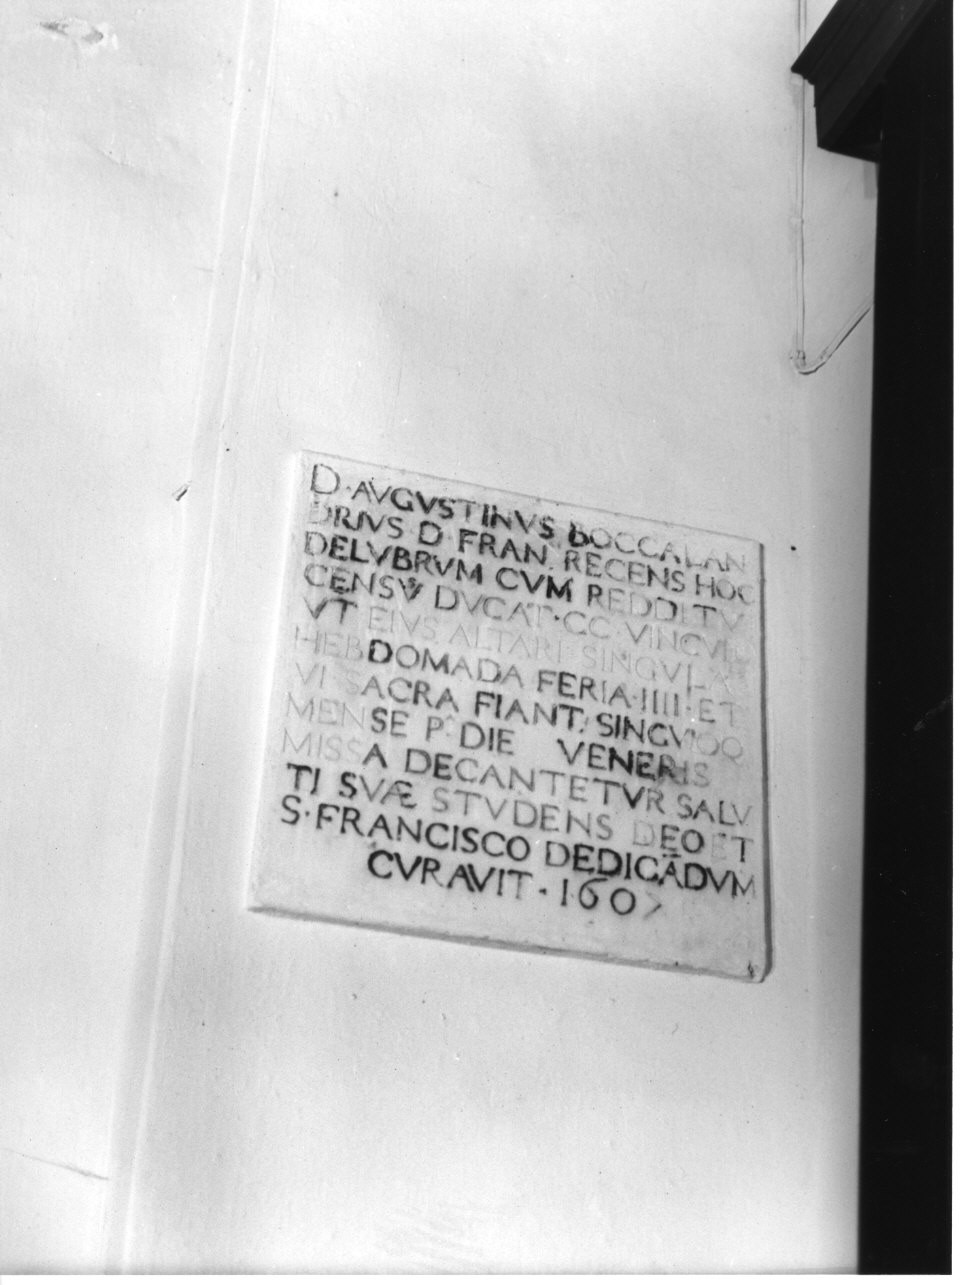 D·AVGVSTINVS BOCCALAN
DRIVS D·FRAN. RECENS HOC
DELVBRVM CVM REDDITV
CENSV DVCAT·CC·VINCVLO
VT EIVS ALTARI SINGVLAS
HEBDOMADA FERIA·IIII·ET
VI SACRA FIANT; SINGVLOQ
MENSE P· DIE VENERIS
MISSA DECANTETVR SALV
TI SVÆ STVDENS DEO ET
S·FRANCISCO DEDICĀDVM
CVRAVIT·1607